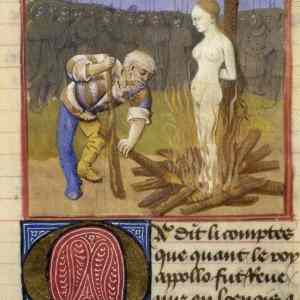 OR dit li comptes
que quant le roy
appollo fut reve